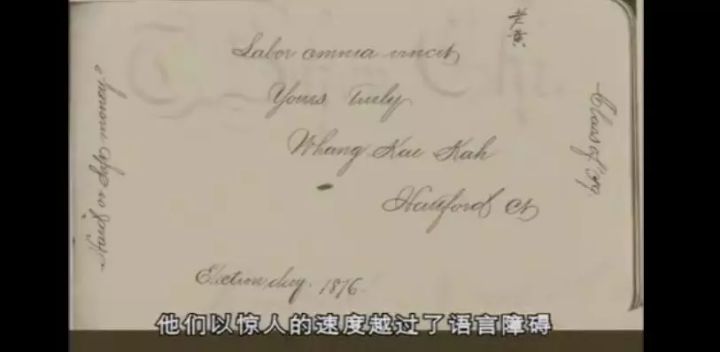 Labor omnia vincit
Yours truly
Whang Kai Kah
Hartford Ct
Election day. 1876.
Class of '79
他们以惊人的速度越过了语言障碍